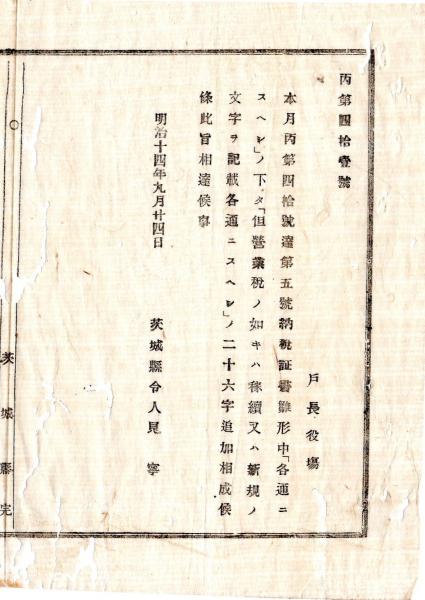 丙第四拾壹號
戸長役場
本月丙第四拾號達第五號納税証書雛形中「各通ニ
スヘシ」ノ下タ「但營業税ノ如キハ稼續又ハ新規ノ
文字ヲ記載各通ニスヘシ」ノ二十六字追加相成候
條此旨相達候事
明治十四年九月廿四日
茨城縣令人見寧
茨城縣